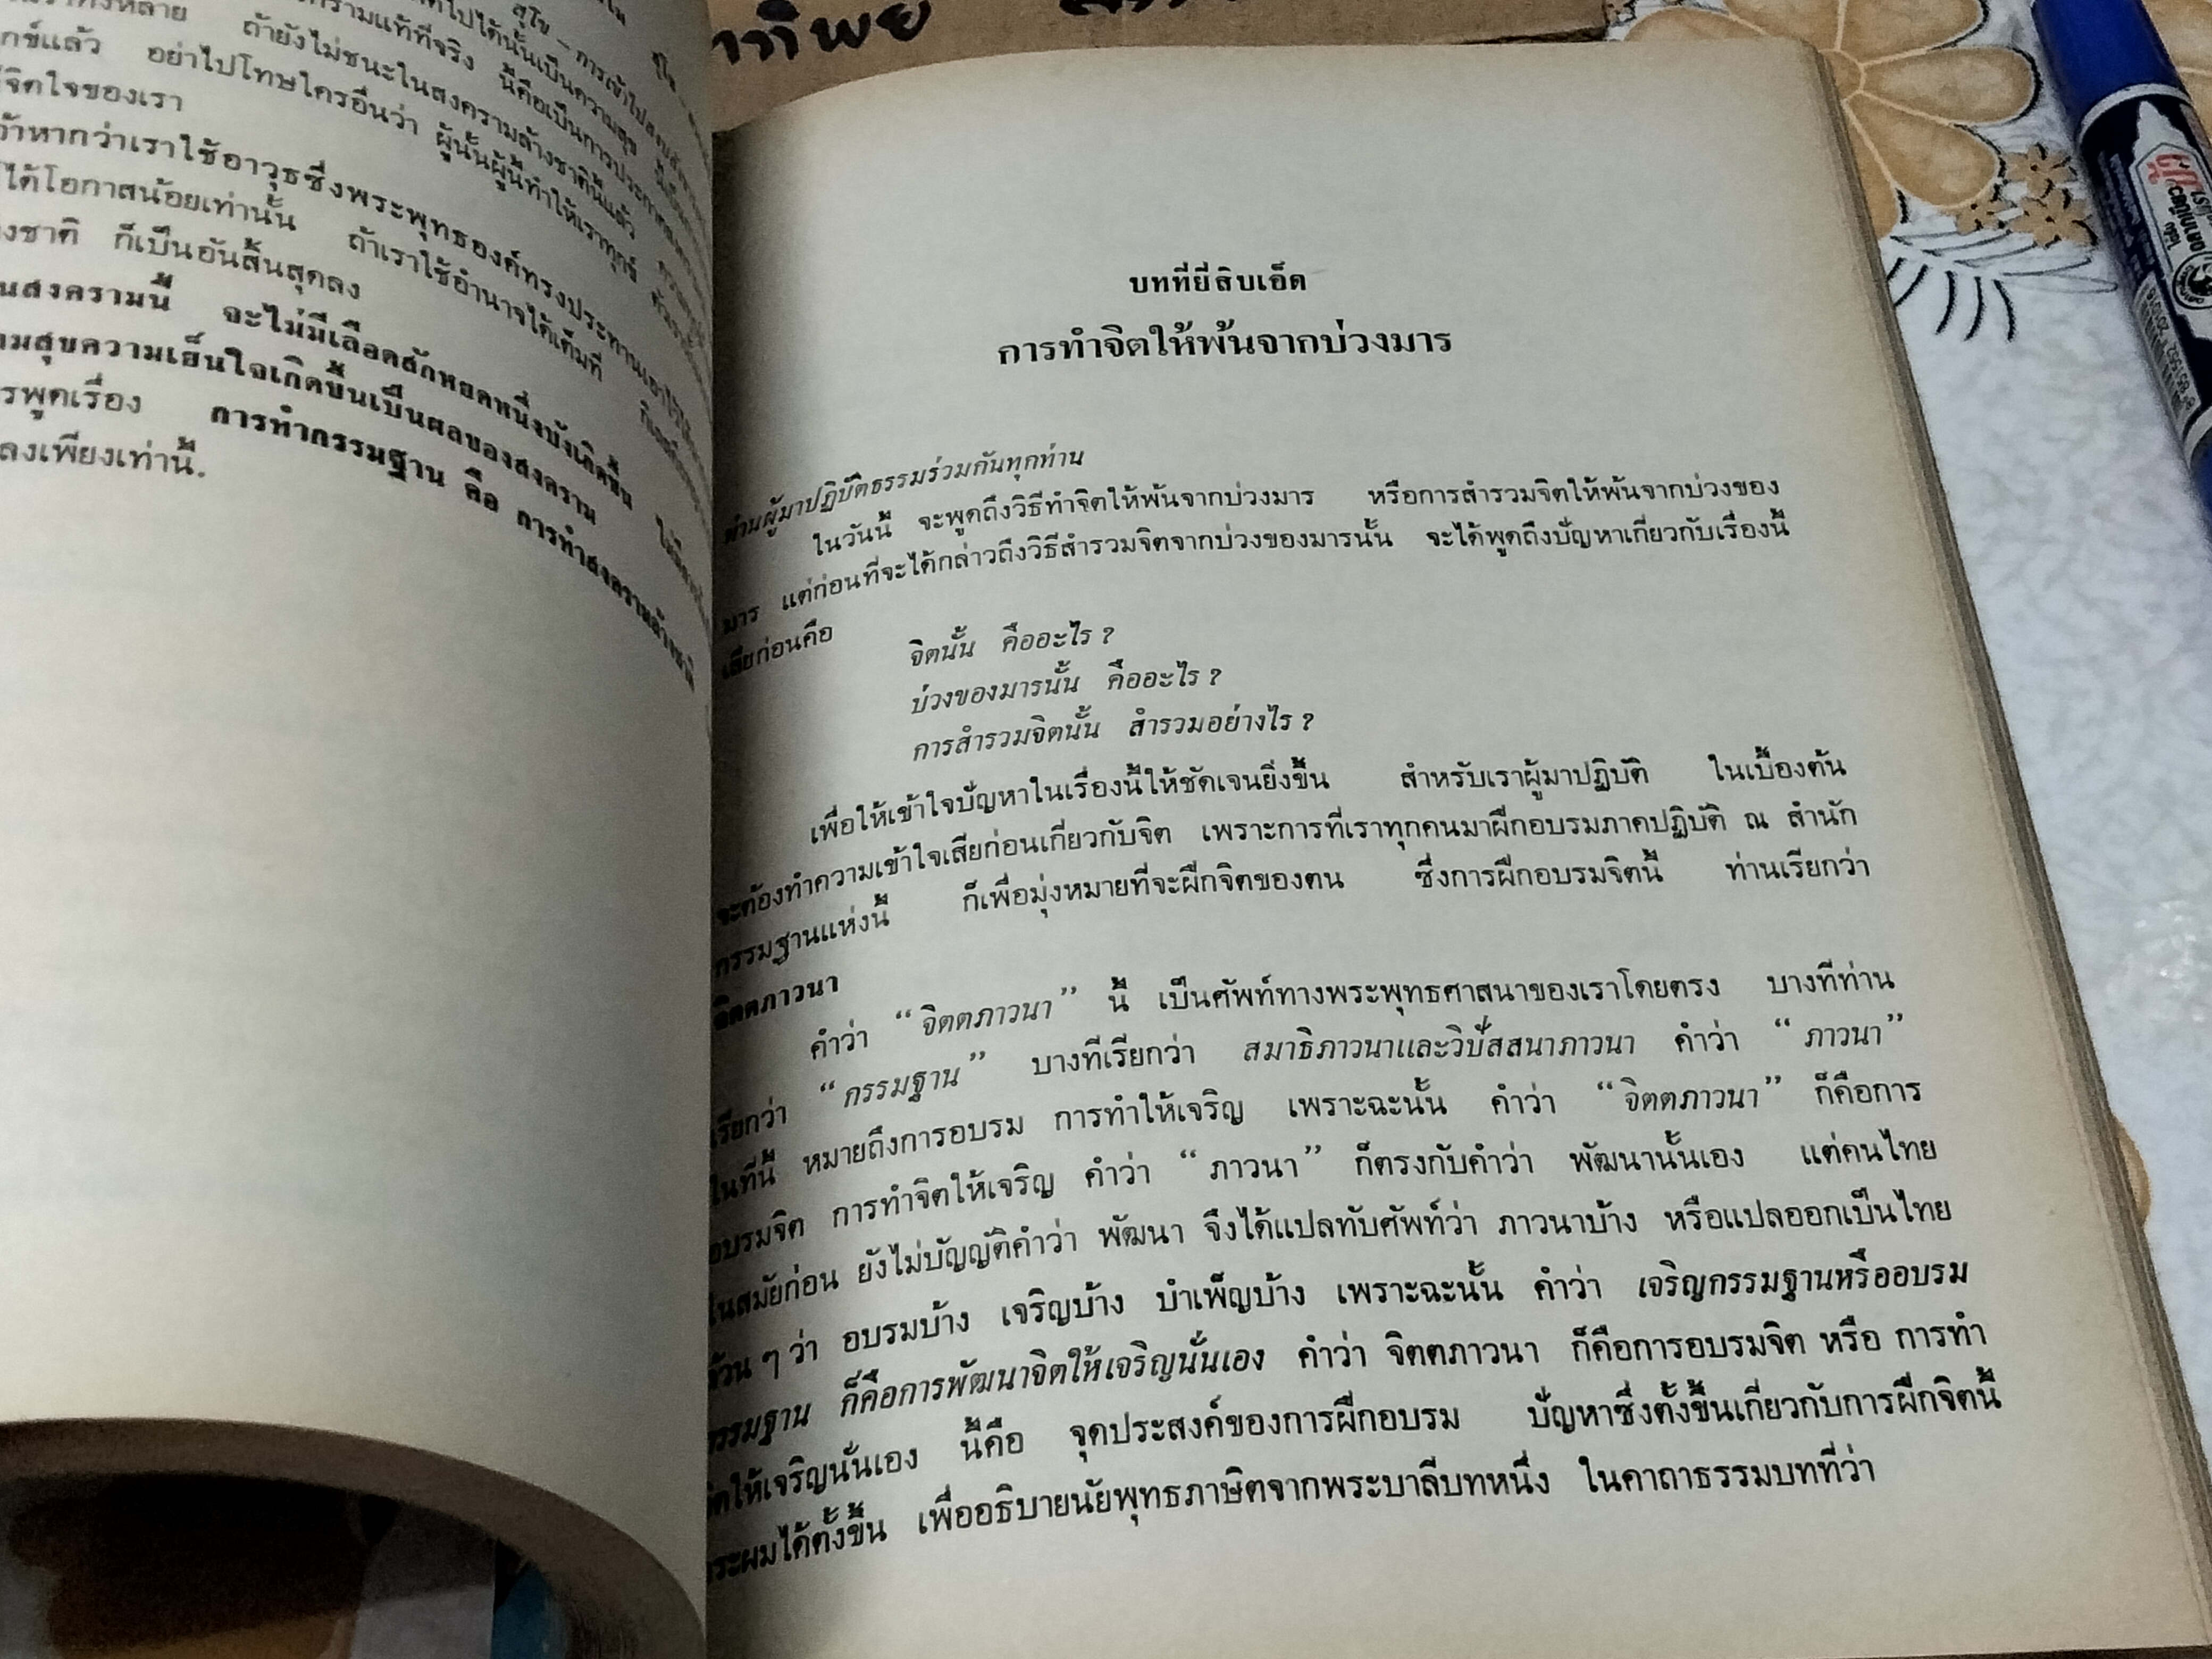 ทั้งหลาย ถ้ายังไม่ชนะในสงครามล้างชาตินี้แล้ว
อย่าไปโทษใครอื่นว่า ผู้นั้นผู้นี้ทำให้เราทุกข์
จิตใจของเรา
ถ้าหากว่าเราใช้อาวุธซึ่งพระพุทธองค์ทรงประทานเอาไว้
ได้โอกาสน้อยเท่านั้น ถ้าเราใช้อำนาจได้เต็มที่
ก็เป็นอันสิ้นสุดลง
สงครามนี้ จะไม่มีเลือดสักหยดหนึ่งบังเกิดขึ้น
ความสุขความเย็นใจเกิดขึ้นเป็นผลของสงคราม
การพูดเรื่อง การทำกรรมฐาน คือ การทำสงครามล้างชาติ
ลงเพียงเท่านี้.
บทที่ยี่สิบเอ็ด
การทำจิตให้พ้นจากบ่วงมาร
ท่านผู้มาปฏิบัติธรรมร่วมกันทุกท่าน
ในวันนี้ จะพูดถึงวิธีทำจิตให้พ้นจากบ่วงมาร หรือการสำรวมจิตให้พ้นจากบ่วงของ
มาร แต่ก่อนที่จะได้กล่าวถึงวิธีสำรวมจิตจากบ่วงของมารนั้น จะได้พูดถึงปัญหาเกี่ยวกับเรื่องนี้
เสียก่อนคือ
จิตนั้น คืออะไร ?
บ่วงของมารนั้น คืออะไร ?
การสำรวมจิตนั้น สำรวมอย่างไร ?
เพื่อให้เข้าใจปัญหาในเรื่องนี้ให้ชัดเจนยิ่งขึ้น สำหรับเราผู้มาปฏิบัติ ในเบื้องต้น
จะต้องทำความเข้าใจเสียก่อนเกี่ยวกับจิต เพราะการที่เราทุกคนมาฝึกอบรมภาคปฏิบัติ ณ สำนัก
กรรมฐานแห่งนี้ ก็เพื่อมุ่งหมายที่จะฝึกจิตของตน ซึ่งการฝึกอบรมจิตนี้ ท่านเรียกว่า
จิตตภาวนา
คำว่า “จิตตภาวนา” นี้ เป็นศัพท์ทางพระพุทธศาสนาของเราโดยตรง บางทีท่าน
เรียกว่า “กรรมฐาน” บางทีเรียกว่า สมาธิภาวนาและวิปัสสนาภาวนา คำว่า “ภาวนา”
ในที่นี้ หมายถึงการอบรม การทำให้เจริญ เพราะฉะนั้น คำว่า “จิตตภาวนา” ก็คือการ
อบรมจิต การทำจิตให้เจริญ คำว่า “ภาวนา” ก็ตรงกับคำว่า พัฒนานั้นเอง แต่คนไทย
ในสมัยก่อน ยังไม่บัญญัติคำว่า พัฒนา จึงได้แปลทับศัพท์ว่า ภาวนาบ้าง หรือแปลออกเป็นไทย
ล้วน ๆ ว่า อบรมบ้าง เจริญบ้าง บำเพ็ญบ้าง เพราะฉะนั้น คำว่า เจริญกรรมฐานหรืออบรม
กรรมฐาน ก็คือการพัฒนาจิตให้เจริญนั่นเอง คำว่า จิตตภาวนา ก็คือการอบรมจิต หรือ การทำ
จิตให้เจริญนั่นเอง นี้คือ จุดประสงค์ของการฝึกอบรม ปัญหาซึ่งตั้งขึ้นเกี่ยวกับการฝึกจิตนี้
กระผมได้ตั้งขึ้น เพื่ออธิบายนัยพุทธภาษิตจากพระบาลีบทหนึ่ง ในคาถาธรรมบทที่ว่า